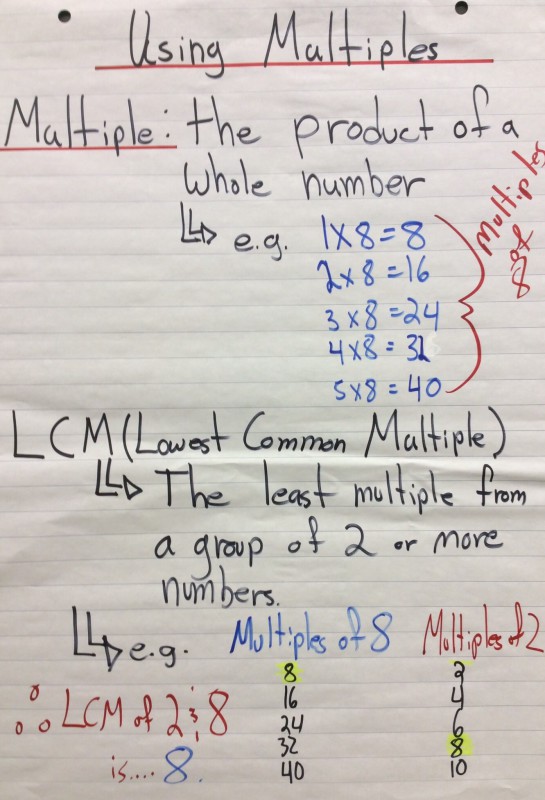 Using Multiples
Multiple: the product of a
whole number
e.g.
1x8=8
2x8=16
3x8=24
4x8=32
5x8=40
Multiples of 8
LCM (Lowest Common Multiple)
The least multiple from
a group of 2 or more
numbers.
e.g.
Multiples of 8
8
16
24
32
40
Multiples of 2
2
4
6
8
10
∴ LCM of 2 & 8
is.... 8.